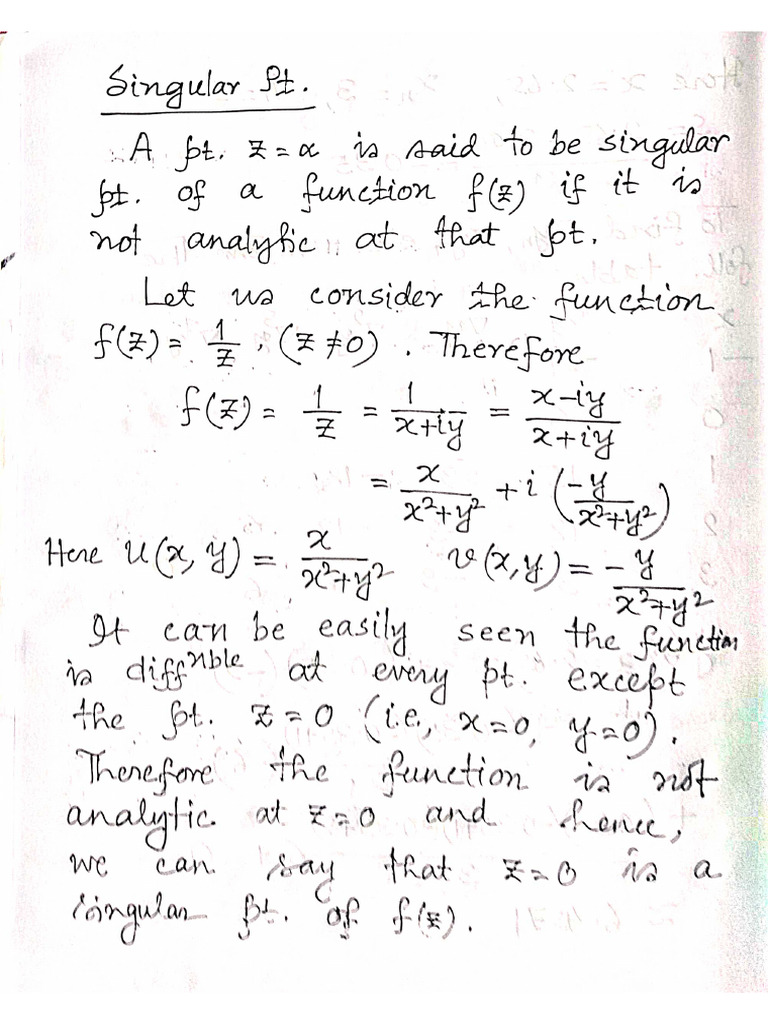 Singular Pt.
A pt. z = α is said to be singular
pt. of a function f(z) if it is
not analytic at that pt.
Let us consider the function
f(z) = 1/z, (z ≠ 0). Therefore
f(z) = 1/z = 1/(x+iy) = (x-iy)/(x+iy)
= x/(x²+y²) + i (-y/(x²+y²))
Here u(x, y) = x/(x²+y²) v(x,y) = -y/(x²+y²)
It can be easily seen the function
is diffnble at every pt. except
the pt. z = 0 (i.e., x=0, y=0).
Therefore the function is not
analytic at z=0 and hence,
we can say that z=0 is a
singular pt. of f(z).